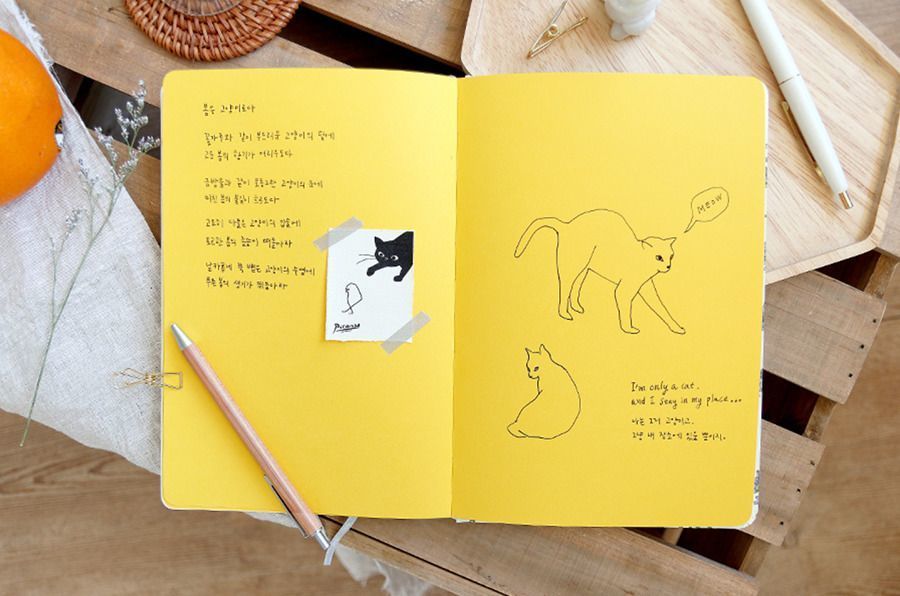 봄은 고양이로다
꽃가루와 같이 부드러운 고양이의 털에
고운 봄의 향기가 어리우도다
금방울과 같이 호동그란 고양이의 눈에
미친 봄의 불길이 흐르도다
고요히 다물은 고양이의 입술에
포근한 봄의 졸음이 떠돌아라
날카롭게 쭉 뻗은 고양이의 수염에
푸른 봄의 생기가 뛰놀아라
Picasso
MEOW
I'm only a cat,
and I stay in my place...
나는 그저 고양이고,
그냥 내 장소에 있을 뿐이지.